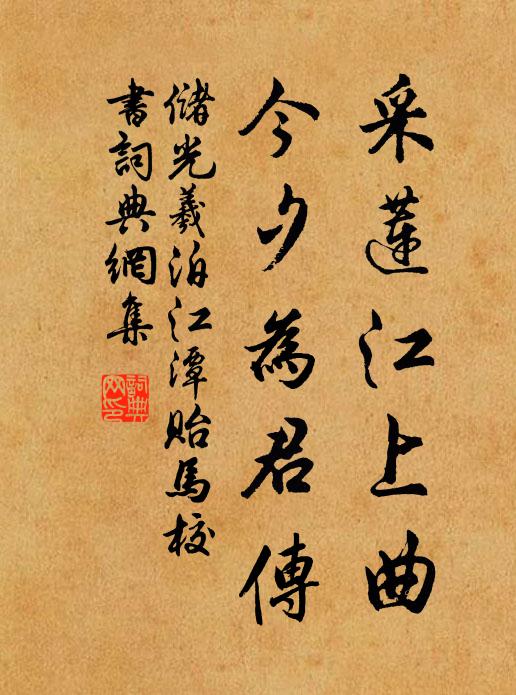 采蓮江上曲
今夕為君傳
儲光羲泊江潭貽馬校
書詞典網集
詞典網印